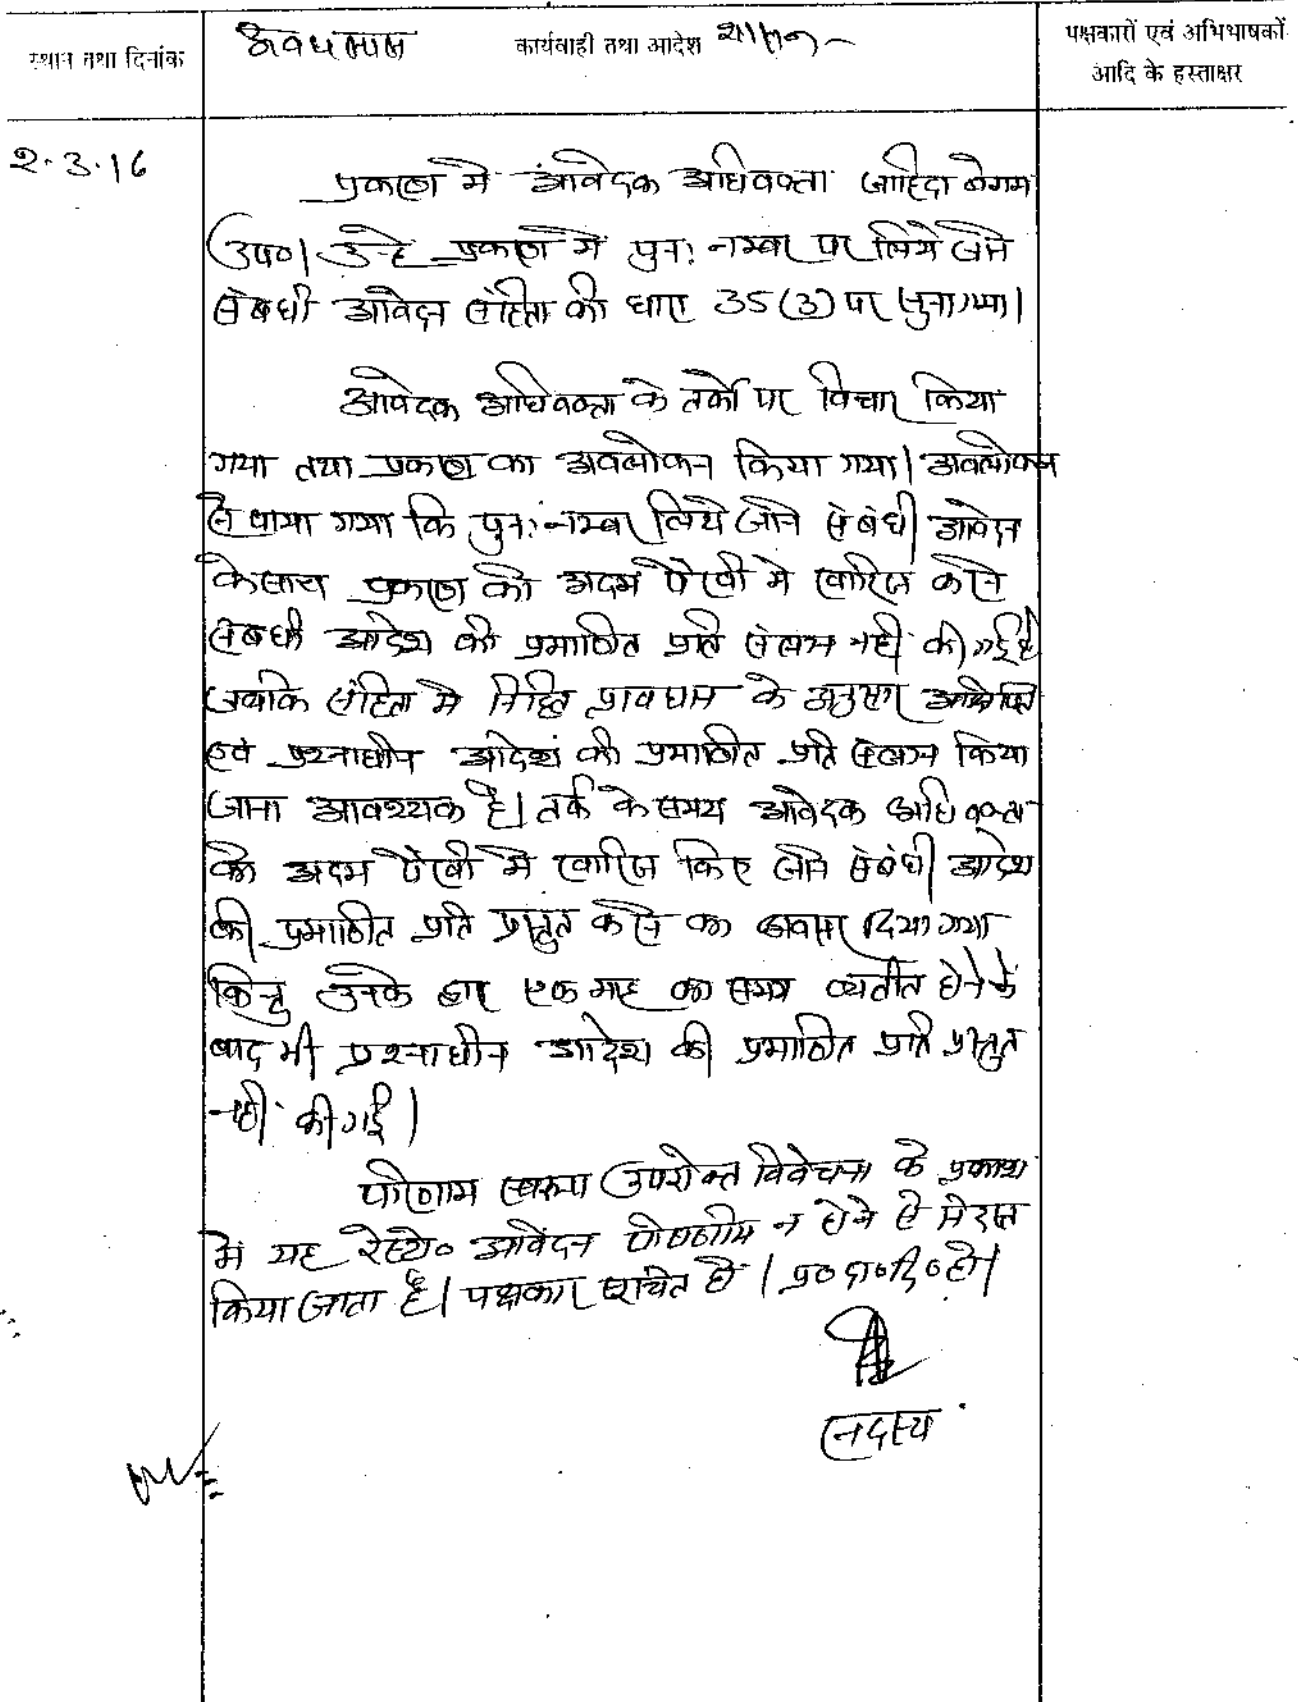 स्थान तथा दिनांक
अवधलाल कार्यवाही तथा आदेश शासन
पक्षकारों एवं अभिभाषकों
आदि के हस्ताक्षर
2.3.16
प्रकरण में आवेदक अधिवक्ता जाहिदा बेगम
उप०। उन्हे प्रकरण में पुन: नम्बर पर लिये जाने
संबधी आवेदन संहिता की धारा 35(3) पर सुना गया।
आवेदक अधिवक्ता के तर्को पर विचार किया
गया तथा प्रकरण का अवलोकन किया गया। अवलोकन
से पाया गया कि पुन: नम्बर लिये जाने संबंधी आवेदन
के साथ प्रकरण को अदम पैरवी में खारिज करने
संबधी आदेश की प्रमाणित प्रति संलग्न नही की गई है
जबकि संहिता में निहित प्रावधान के अनुसार
एवं प्रश्नाधीन आदेश की प्रमाणित प्रति संलग्न किया
जाना आवश्यक है। तर्क के समय आवेदक अधिवक्ता
को अदम पैरवी में खारिज किए जाने संबंधी आदेश
की प्रमाणित प्रति प्रस्तुत करने का अवसर दिया गया
किन्तु उनके द्वारा एक माह का समय व्यतीत होने के
बाद भी प्रश्नाधीन आदेश की प्रमाणित प्रति प्रस्तुत
नहीं की गई।
परिणाम स्वरूप उपरोक्त विवेचना के प्रकाश
में यह रेस्टो० आवेदन पोषणीय न होने से निरस्त
किया जाता है। पक्षकार सूचित हो। प्र० दा० द० हो।
सदस्य